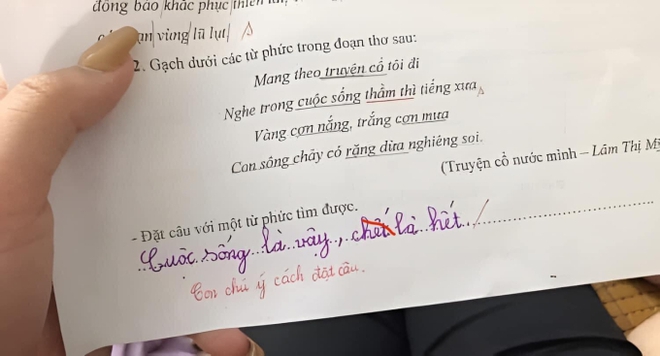 đồng bào khắc phục thiên
vùng lũ lụt
2. Gạch dưới các từ phức trong đoạn thơ sau:
Mang theo truyện cổ tôi đi
Nghe trong cuộc sống thầm thì tiếng xưa
Vàng cơn nắng, trắng cơn mưa
Con sông chảy có rặng dừa nghiêng soi.
(Truyện cổ nước mình – Lâm Thị Mỹ
- Đặt câu với một từ phức tìm được.
Cuộc sống là vậy, chết là hết.
Con chú ý cách đặt câu.